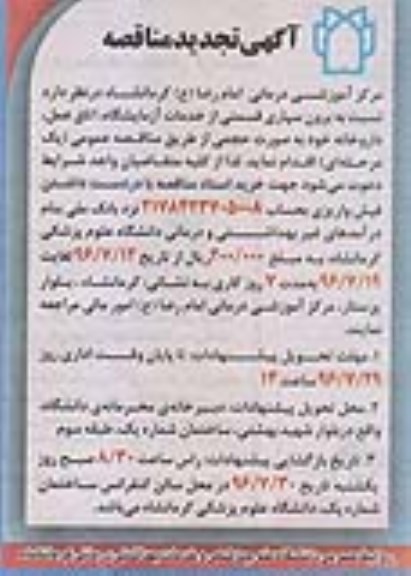 آگهی تجدید مناقصه
مرکز آموزشی درمانی امام رضا (ع) کرمانشاه در نظر دارد
نسبت به برون سپاری قسمتی از خدمات آزمایشگاه، اتاق عمل،
داروخانه خود به صورت حجمی از طریق مناقصه عمومی (یک
مرحله‌ای) اقدام نماید. لذا از کلیه متقاضیان واجد شرایط
دعوت می‌شود جهت خرید اسناد مناقصه با در دست داشتن
فیش واریزی بحساب نزد بانک ملی بنام
درآمدهای غیر بهداشتی و درمانی دانشگاه علوم پزشکی
کرمانشاه به مبلغ ۲۰۰/۰۰۰ ریال از تاریخ ۹۶/۷/۱۲ لغایت
۹۶/۷/۱۹ بمدت ۷ روز کاری به نشانی: کرمانشاه ـ بلوار
پرستار، مرکز آموزشی درمانی امام رضا (ع) امور مالی مراجعه
نمایند.
۱. مهلت تحویل پیشنهادات: تا پایان وقت اداری روز
۹۶/۷/۲۹ ساعت ۱۴
۲. محل تحویل پیشنهادات: دبیرخانه‌ی محرمانه‌ی دانشگاه
واقع در بلوار شهید بهشتی، ساختمان شماره یک، طبقه دوم
۳. تاریخ بازگشایی پیشنهادات: راس ساعت ۸/۳۰ صبح روز
یکشنبه تاریخ ۹۶/۷/۳۰ در محل سالن کنفرانس ساختمان
شماره یک دانشگاه علوم پزشکی کرمانشاه می‌باشد.